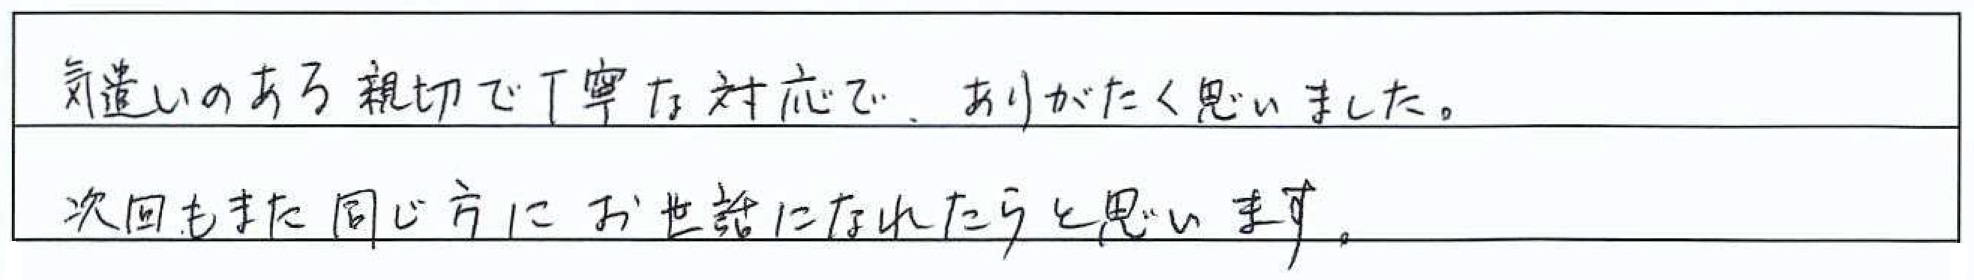 気遣いのある親切で丁寧な対応で、ありがたく思いました。
次回もまた同じ方にお世話になれたらと思います。